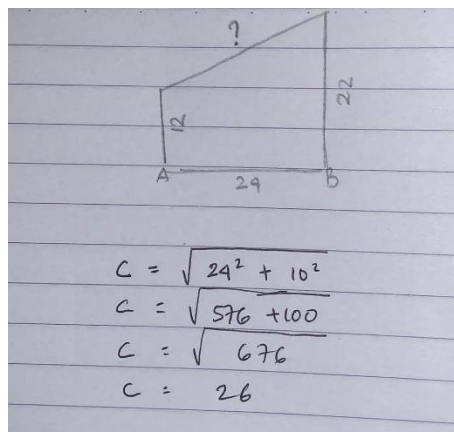 ?
12
22
A
24
B
C = √24² + 10²
C = √576 + 100
C = √676
C = 26